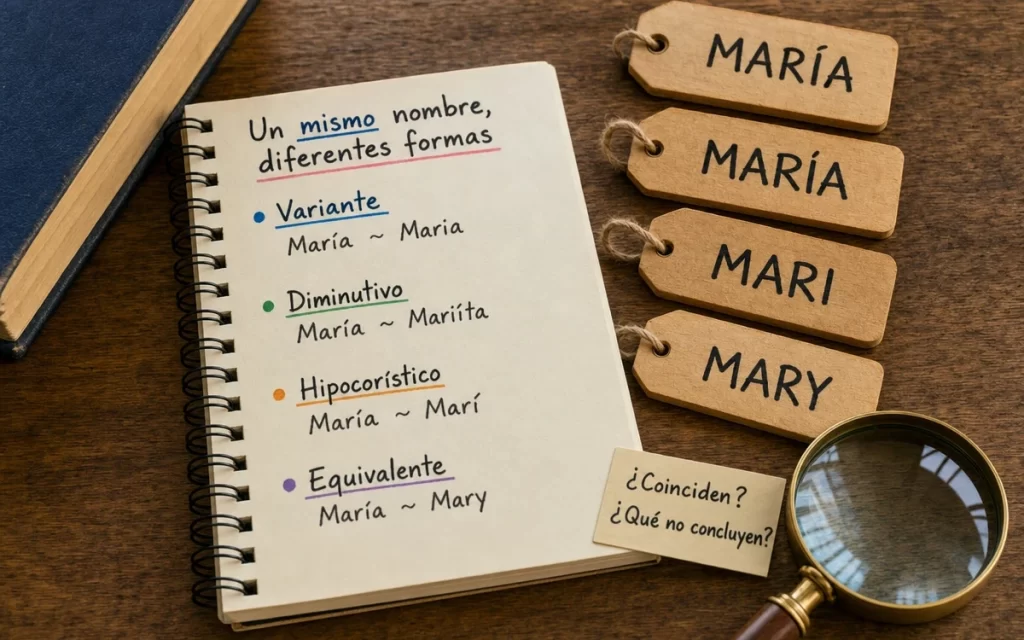 Un mismo nombre,
diferentes formas
Variante
María ~ Maria
Diminutivo
María ~ Mariíta
Hipocorístico
María ~ Marí
Equivalente
María ~ Mary
MARÍA
MARÍA
MARI
MARY
¿Coinciden?
¿Qué no concluyen?